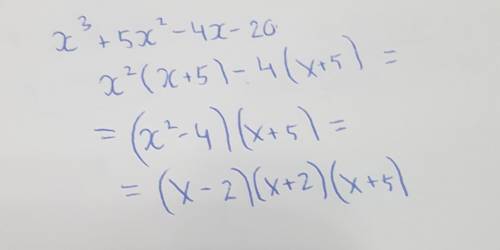 x³ + 5x² - 4x - 20
x²(x+5) - 4(x+5) =
= (x² - 4)(x+5) =
= (x - 2)(x+2)(x+5)